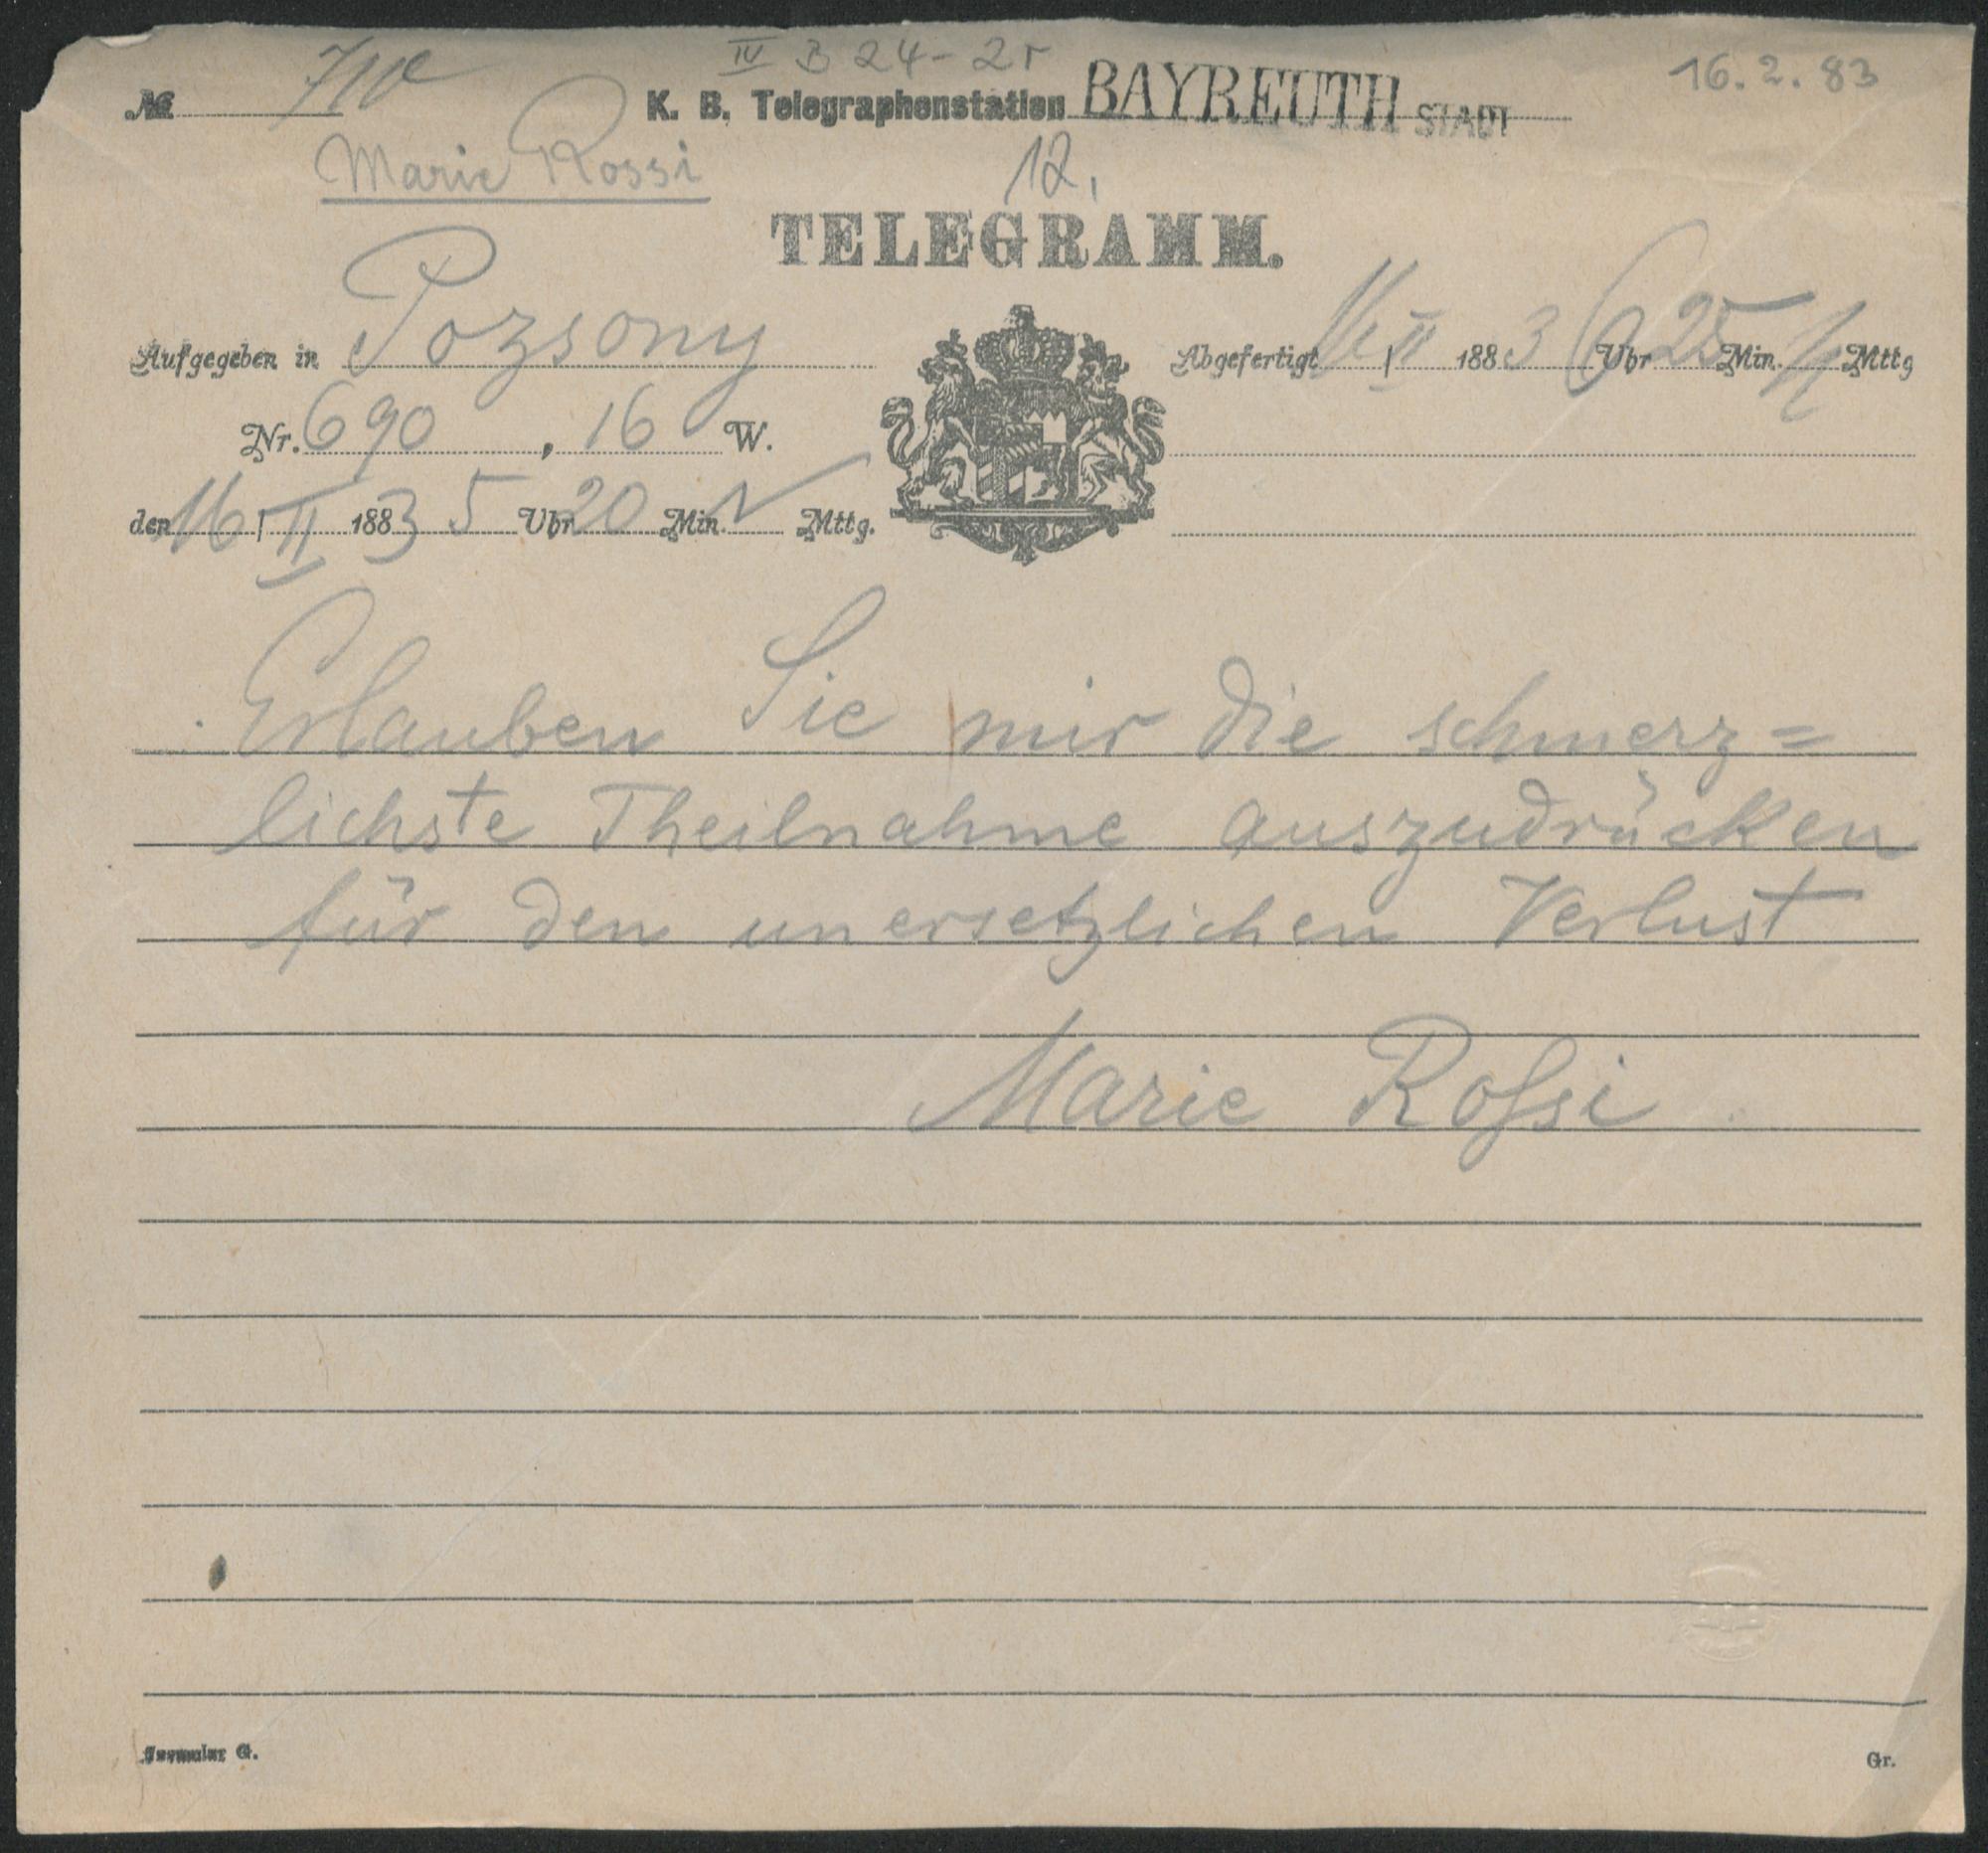 IV B 24-2r
16.2.83
№ K. B. Telegraphenstation BAYREUTH STADT
Marie Rossi
12,
TELEGRAMM.
Aufgegeben in Pozsony
Abgefertigt 16/II 1883 6 Uhr 25 Min. Mttg
Nr. 690, 16 W.
den 16/II 1883 5 Uhr 20 Min. N Mttg.
Erlauben Sie mir die schmerz=
lichste Theilnahme auszudrücken
für den unersetzlichen Verlust
Marie Roſsi
Formular G.
Gr.